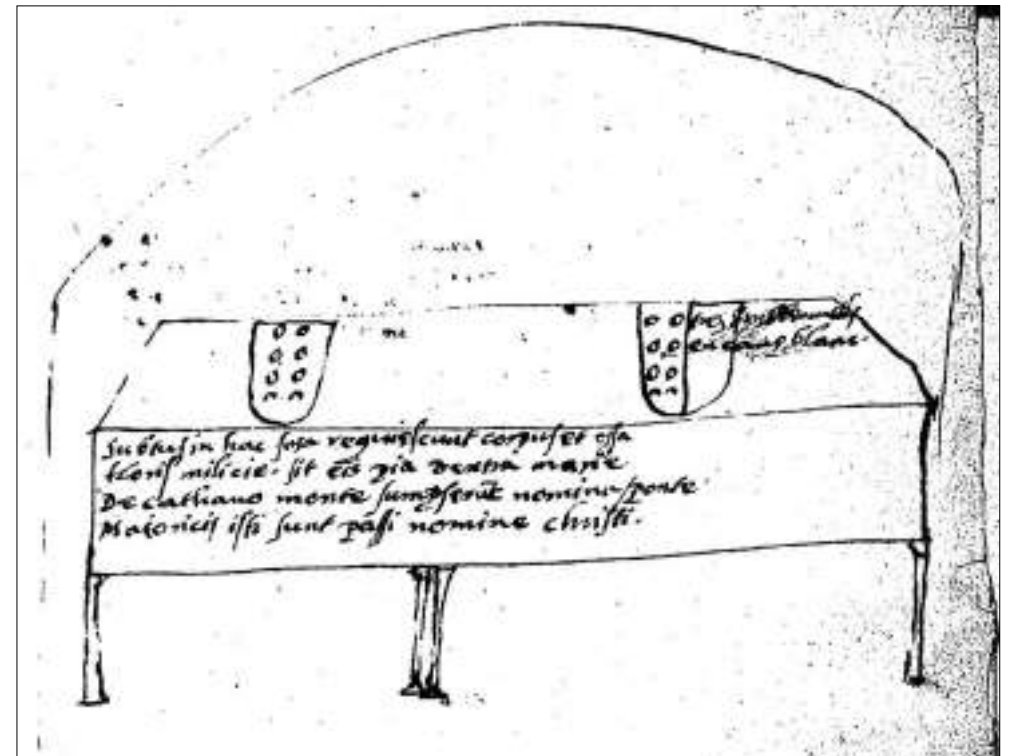 en camp blanc.
Subtus in hac fossa requiescunt corpus et ossa
floris milicie. sit eis pia dextra marie
De cathano monte sumpserūt nomina sponte
Maioricis isti sunt passi nomine christi.